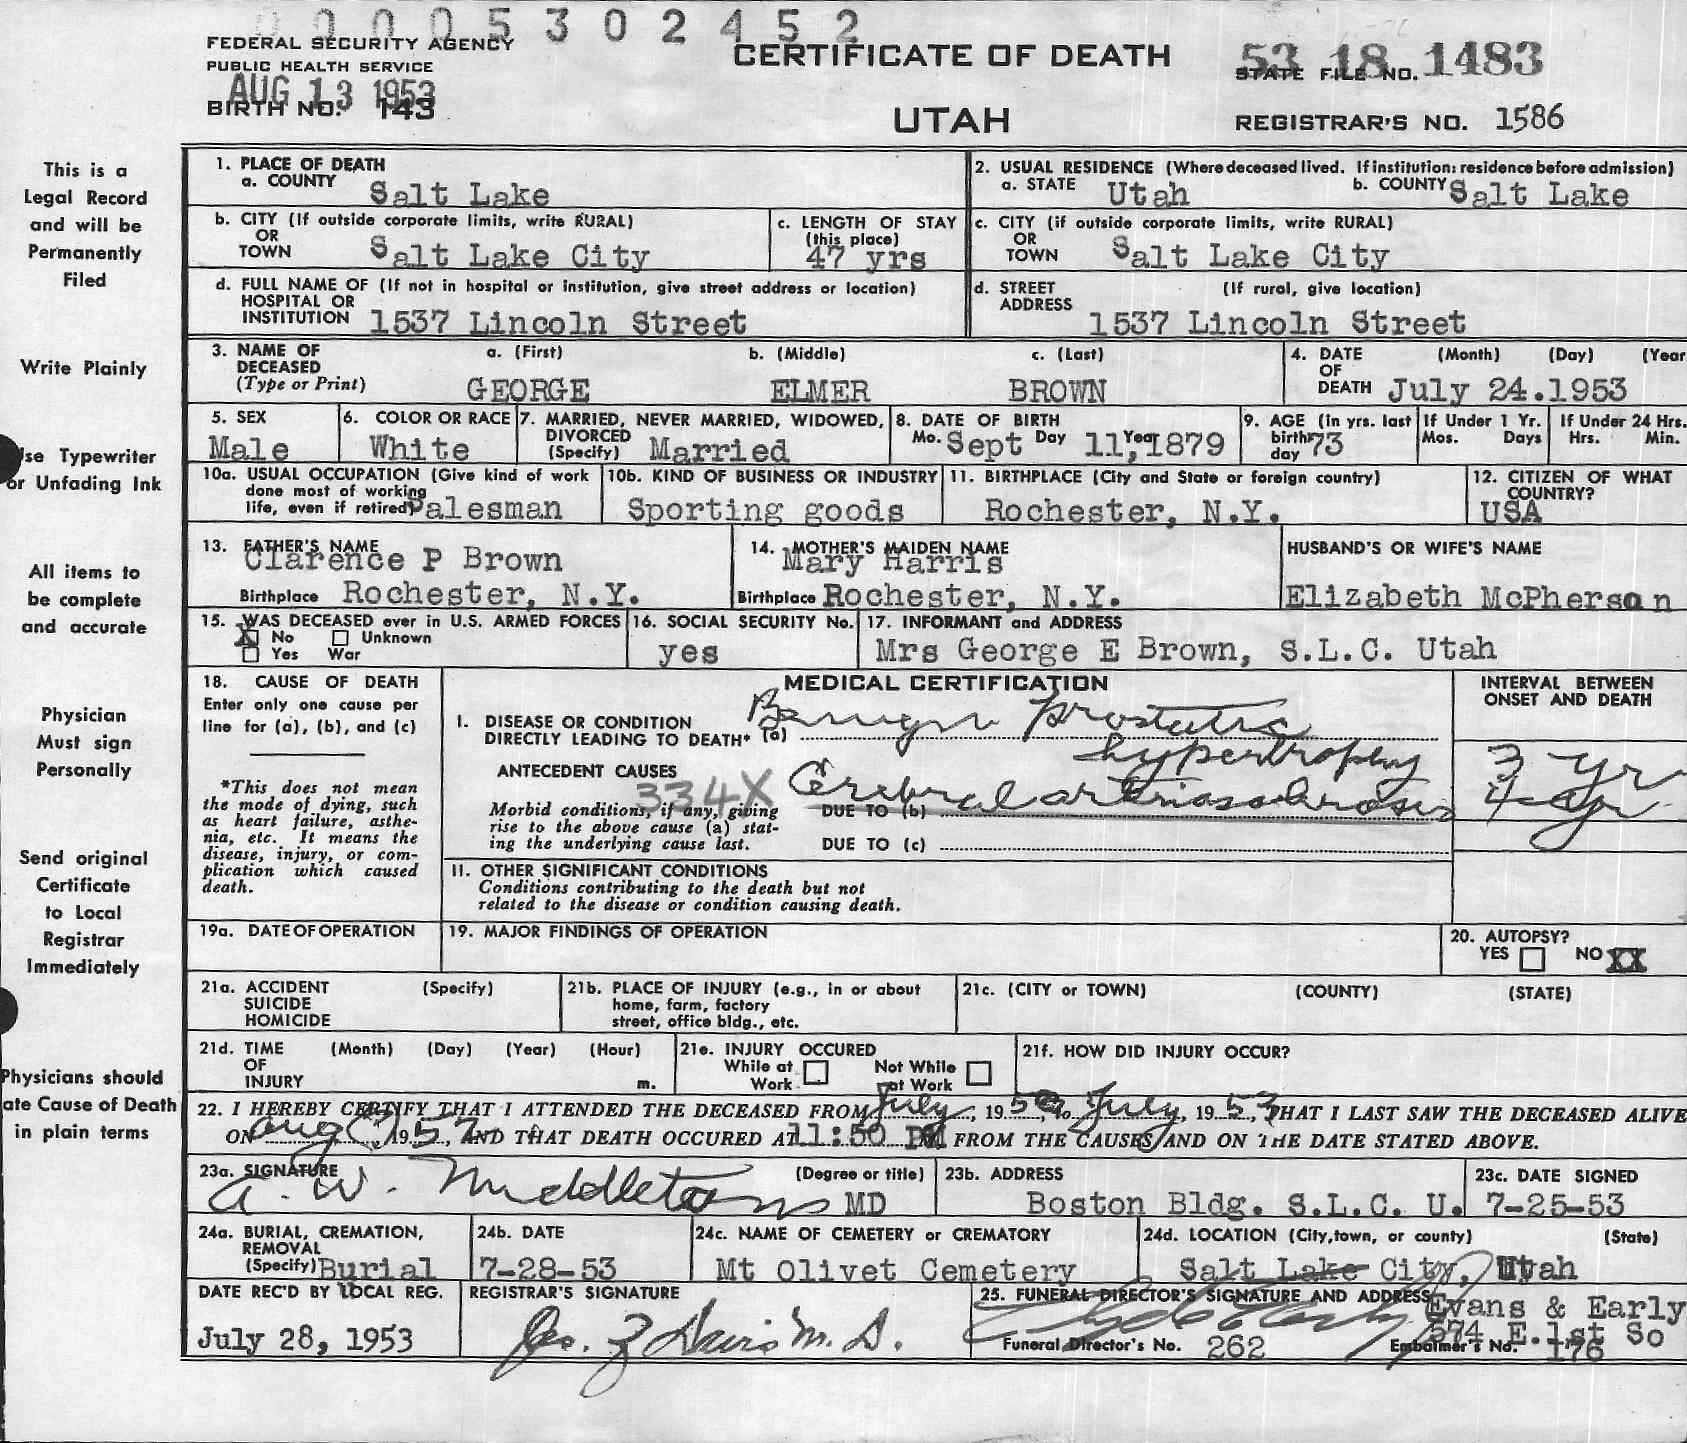 0 0 0 0 5 3 0 2 4 5 2
FEDERAL SECURITY AGENCY
PUBLIC HEALTH SERVICE
AUG 13 1953
BIRTH NO. 143
CERTIFICATE OF DEATH
UTAH
53 18 1483
STATE FILE NO.
REGISTRAR'S NO. 1586
This is a
Legal Record
and will be
Permanently
Filed
Write Plainly
Use Typewriter
or Unfading Ink
All items to
be complete
and accurate
Physician
Must sign
Personally
Send original
Certificate
to Local
Registrar
Immediately
Physicians should
ate Cause of Death
in plain terms
1. PLACE OF DEATH
a. COUNTY Salt Lake
2. USUAL RESIDENCE (Where deceased lived. If institution: residence before admission)
a. STATE Utah b. COUNTY Salt Lake
b. CITY (If outside corporate limits, write RURAL)
OR
TOWN Salt Lake City
c. LENGTH OF STAY
(this place)
47 yrs
c. CITY (if outside corporate limits, write RURAL)
OR
TOWN Salt Lake City
d. FULL NAME OF (If not in hospital or institution, give street address or location)
HOSPITAL OR
INSTITUTION 1537 Lincoln Street
d. STREET (If rural, give location)
ADDRESS
1537 Lincoln Street
3. NAME OF a. (First) b. (Middle) c. (Last)
DECEASED
(Type or Print) GEORGE ELMER BROWN
4. DATE (Month) (Day) (Year
OF
DEATH July 24.1953
5. SEX
Male
6. COLOR OR RACE
White
7. MARRIED, NEVER MARRIED, WIDOWED,
DIVORCED
(Specify) Married
8. DATE OF BIRTH
Mo. Sept Day 11, Year 1879
9. AGE (in yrs. last
birth
day 73
If Under 1 Yr.
Mos. Days
If Under 24 Hrs.
Hrs. Min.
10a. USUAL OCCUPATION (Give kind of work
done most of working
life, even if retired) Salesman
10b. KIND OF BUSINESS OR INDUSTRY
Sporting goods
11. BIRTHPLACE (City and State or foreign country)
Rochester, N.Y.
12. CITIZEN OF WHAT
COUNTRY?
USA
13. FATHER'S NAME
Clarence P Brown
Birthplace Rochester, N.Y.
14. MOTHER'S MAIDEN NAME
Mary Harris
Birthplace Rochester, N.Y.
HUSBAND'S OR WIFE'S NAME
Elizabeth McPherson
15. WAS DECEASED ever in U.S. ARMED FORCES
X No Unknown
Yes War
16. SOCIAL SECURITY No.
yes
17. INFORMANT and ADDRESS
Mrs George E Brown, S.L.C. Utah
18. CAUSE OF DEATH
Enter only one cause per
line for (a), (b), and (c)
*This does not mean
the mode of dying, such
as heart failure, asthe-
nia, etc. It means the
disease, injury, or com-
plication which caused
death.
MEDICAL CERTIFICATION
I. DISEASE OR CONDITION
DIRECTLY LEADING TO DEATH* (a) Benign Prostatic
hypertrophy
ANTECEDENT CAUSES
334X
Morbid conditions, if any, giving
rise to the above cause (a) stat-
ing the underlying cause last.
DUE TO (b) Cerebral arteriosclerosis
DUE TO (c)
INTERVAL BETWEEN
ONSET AND DEATH
3 yr
4 yr
11. OTHER SIGNIFICANT CONDITIONS
Conditions contributing to the death but not
related to the disease or condition causing death.
19a. DATE OF OPERATION
19. MAJOR FINDINGS OF OPERATION
20. AUTOPSY?
YES NO XX
21a. ACCIDENT (Specify)
SUICIDE
HOMICIDE
21b. PLACE OF INJURY (e.g., in or about
home, farm, factory
street, office bldg., etc.
21c. (CITY or TOWN) (COUNTY) (STATE)
21d. TIME (Month) (Day) (Year) (Hour)
OF
INJURY m.
21e. INJURY OCCURED
While at Work
Not While at Work
21f. HOW DID INJURY OCCUR?
22. I HEREBY CERTIFY THAT I ATTENDED THE DECEASED FROM July, 1950, to July, 1953, THAT I LAST SAW THE DECEASED ALIVE
ON Aug, 195, AND THAT DEATH OCCURED AT 11:50 PM FROM THE CAUSES AND ON THE DATE STATED ABOVE.
23a. SIGNATURE (Degree or title)
A. W. Middleton MD
23b. ADDRESS
Boston Bldg. S.L.C. U.
23c. DATE SIGNED
7-25-53
24a. BURIAL, CREMATION,
REMOVAL
(Specify) Burial
24b. DATE
7-28-53
24c. NAME OF CEMETERY or CREMATORY
Mt Olivet Cemetery
24d. LOCATION (City, town, or county) (State)
Salt Lake City, Utah
DATE REC'D BY LOCAL REG.
July 28, 1953
REGISTRAR'S SIGNATURE
Geo. Z Davis M.D.
25. FUNERAL DIRECTOR'S SIGNATURE AND ADDRESS
Evans & Early
574 E.1st So
Funeral Director's No. 262
Embalmer's No. 176